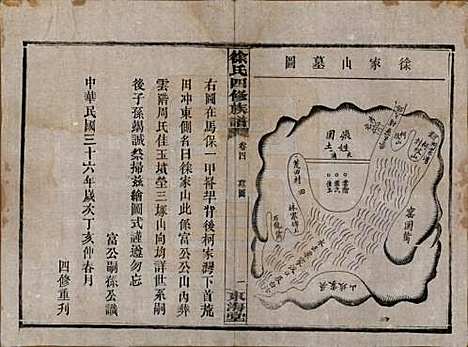 徐家山墓圖
張姓
土圍
雲階
周氏
佳玉
富國衝
徐氏四修族譜
卷四
墓圖
一
東海堂
右圖在馬保一甲得學背後柯家灣下首荒
田冲東側名曰徐家山此係富公公山內彝
雲階周氏佳玉墳塋三塚山向均詳世系嗣
後子孫竭誠祭掃茲繪圖式謹遵勿忘
富公嗣孫公識
中華民國三十六年歲次丁亥仲春月
四修重刊